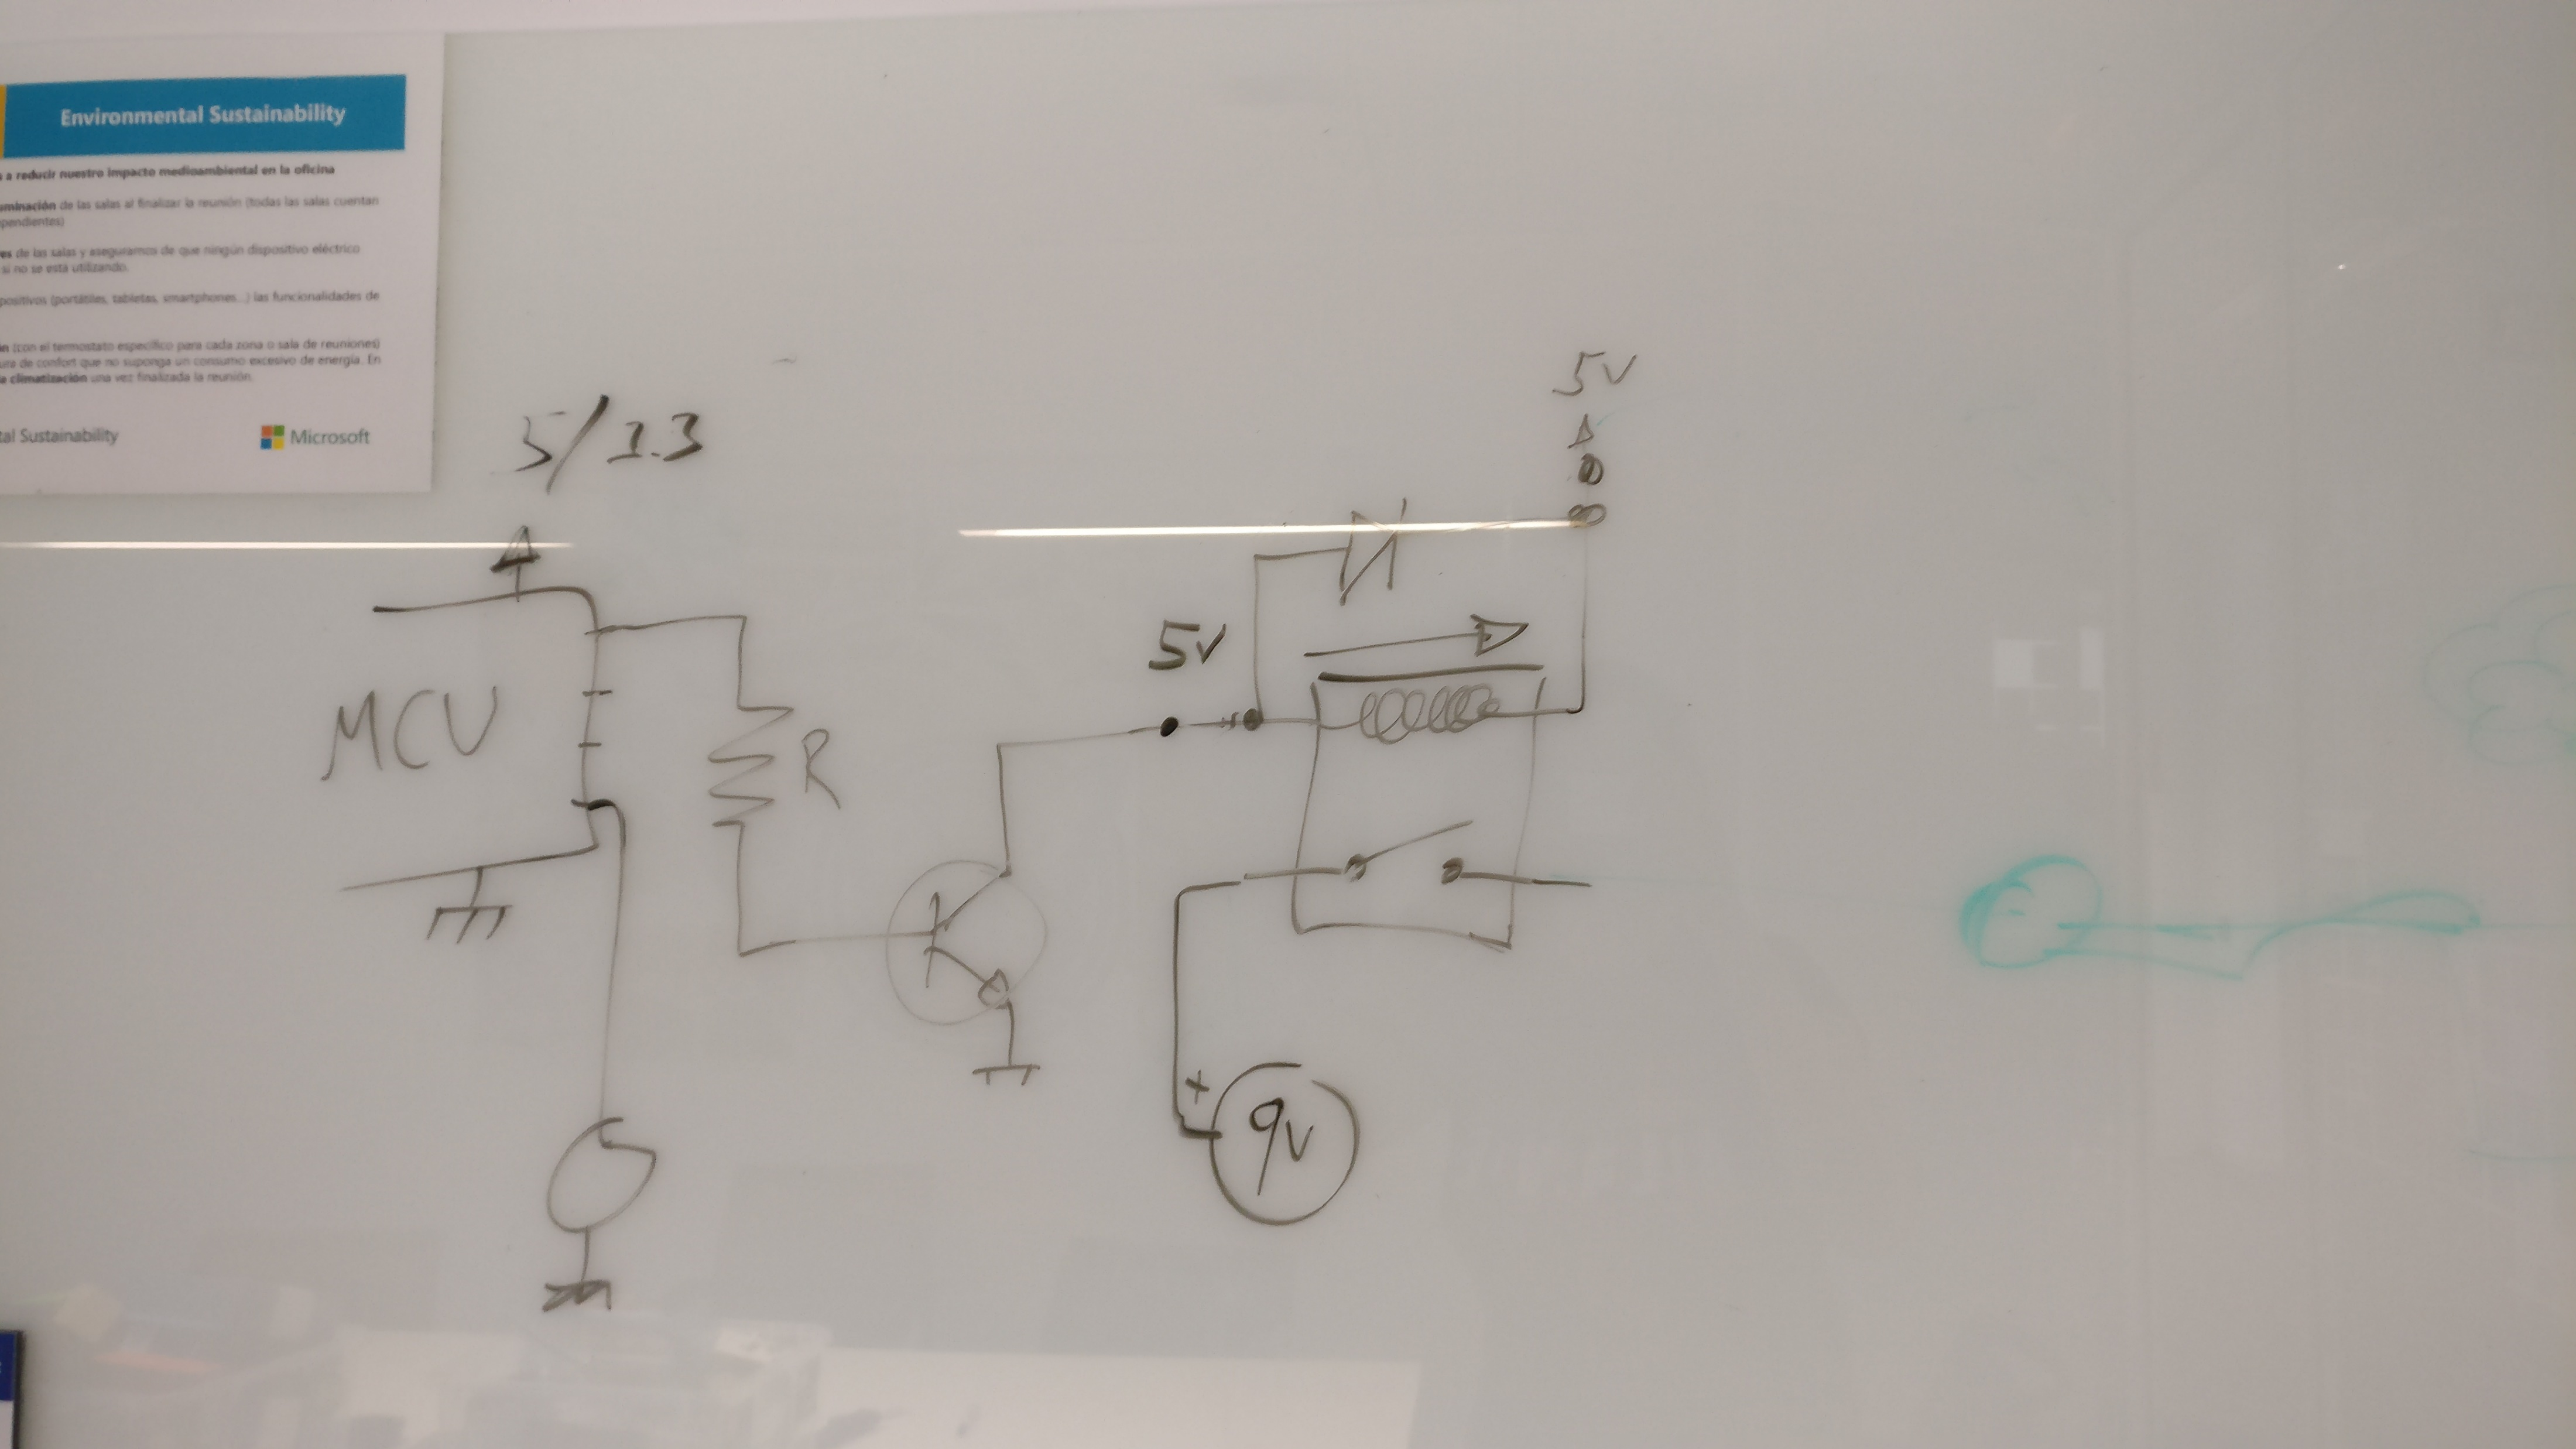 Environmental Sustainability
a reducir nuestro impacto medioambiental en la oficina
uminación de las salas al finalizar la reunión (todas las salas cuentan
pendientes)
es de las salas y aseguramos de que ningún dispositivo eléctrico
si no se está utilizando.
positivos (portátiles, tabletas, smartphones...) las funcionalidades de
n (con el termostato específico para cada zona o sala de reuniones)
ura de confort que no suponga un consumo excesivo de energía. En
a climatización una vez finalizada la reunión.
tal Sustainability
Microsoft
5V
5/3.3
5V
MCU
R
+
9V